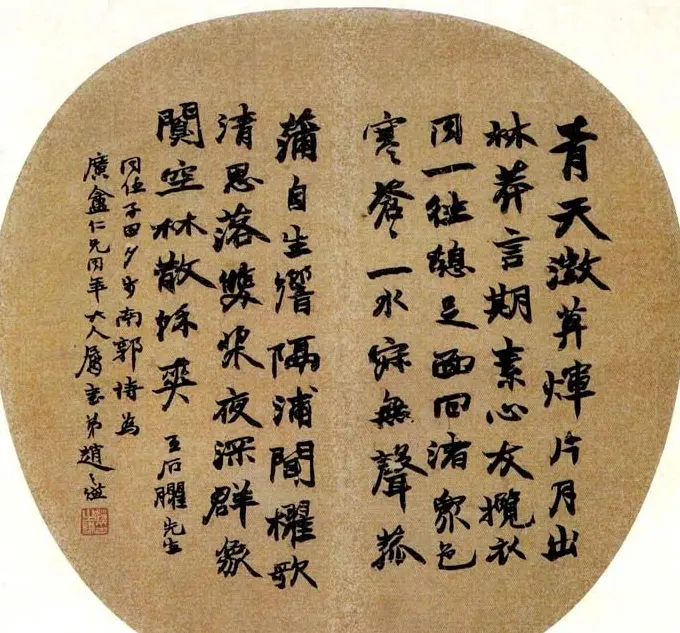 青天澂輝片月出
林莽言期素心友攬衣
同一徃憩足面回渚衆色
寒蒼〻一水寂無聲菰
蒲自生響隔浦聞櫂歌
清思落雙槳夜深群象
闃空林散穌爽 王石臞先生
同伍子田夕步南郭詩為
廣盦仁兄同年大人屬書弟趙之謙